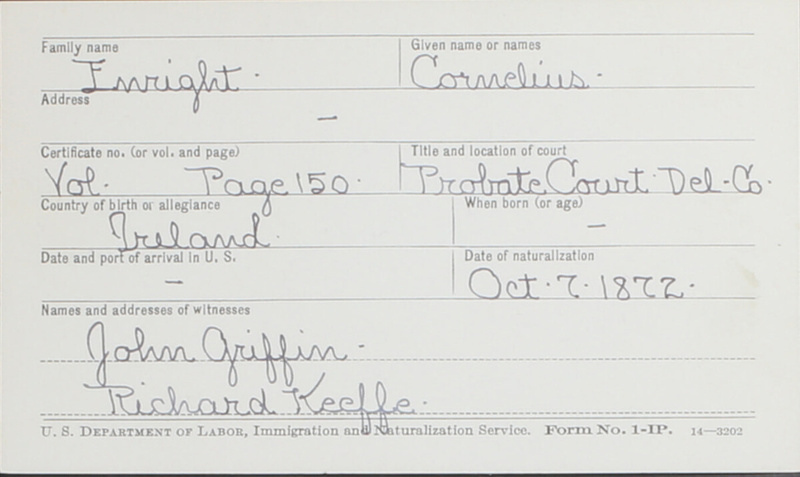 Family name Given name or names
Enright. Cornelius.
Address
—
Certificate no. (or vol. and page) Title and location of court
Vol. Page 150. Probate Court Del-Co.
Country of birth or allegiance When born (or age)
Ireland. —
Date and port of arrival in U. S. Date of naturalization
— Oct. 7. 1872.
Names and addresses of witnesses
John Griffin.
Richard Keeffe.
U. S. Department of Labor, Immigration and Naturalization Service. Form No. 1-IP. 14—3202